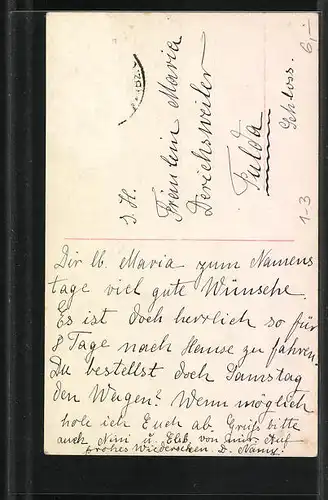 S. H.
Fräulein Maria
Derichsweiler
Fulda
Schloss.
6,-
1-3
Dir lb. Maria zum Namens
tage viel gute Wünsche.
Es ist doch herrlich so für
8 Tage nach Hause zu fahren.
Du bestellst doch Samstag
den Wagen? Wenn möglich
hole ich Euch ab. Gruß bitte
auch Nini u. Elb. von mir. Auf
frohes Wiedersehen. D.